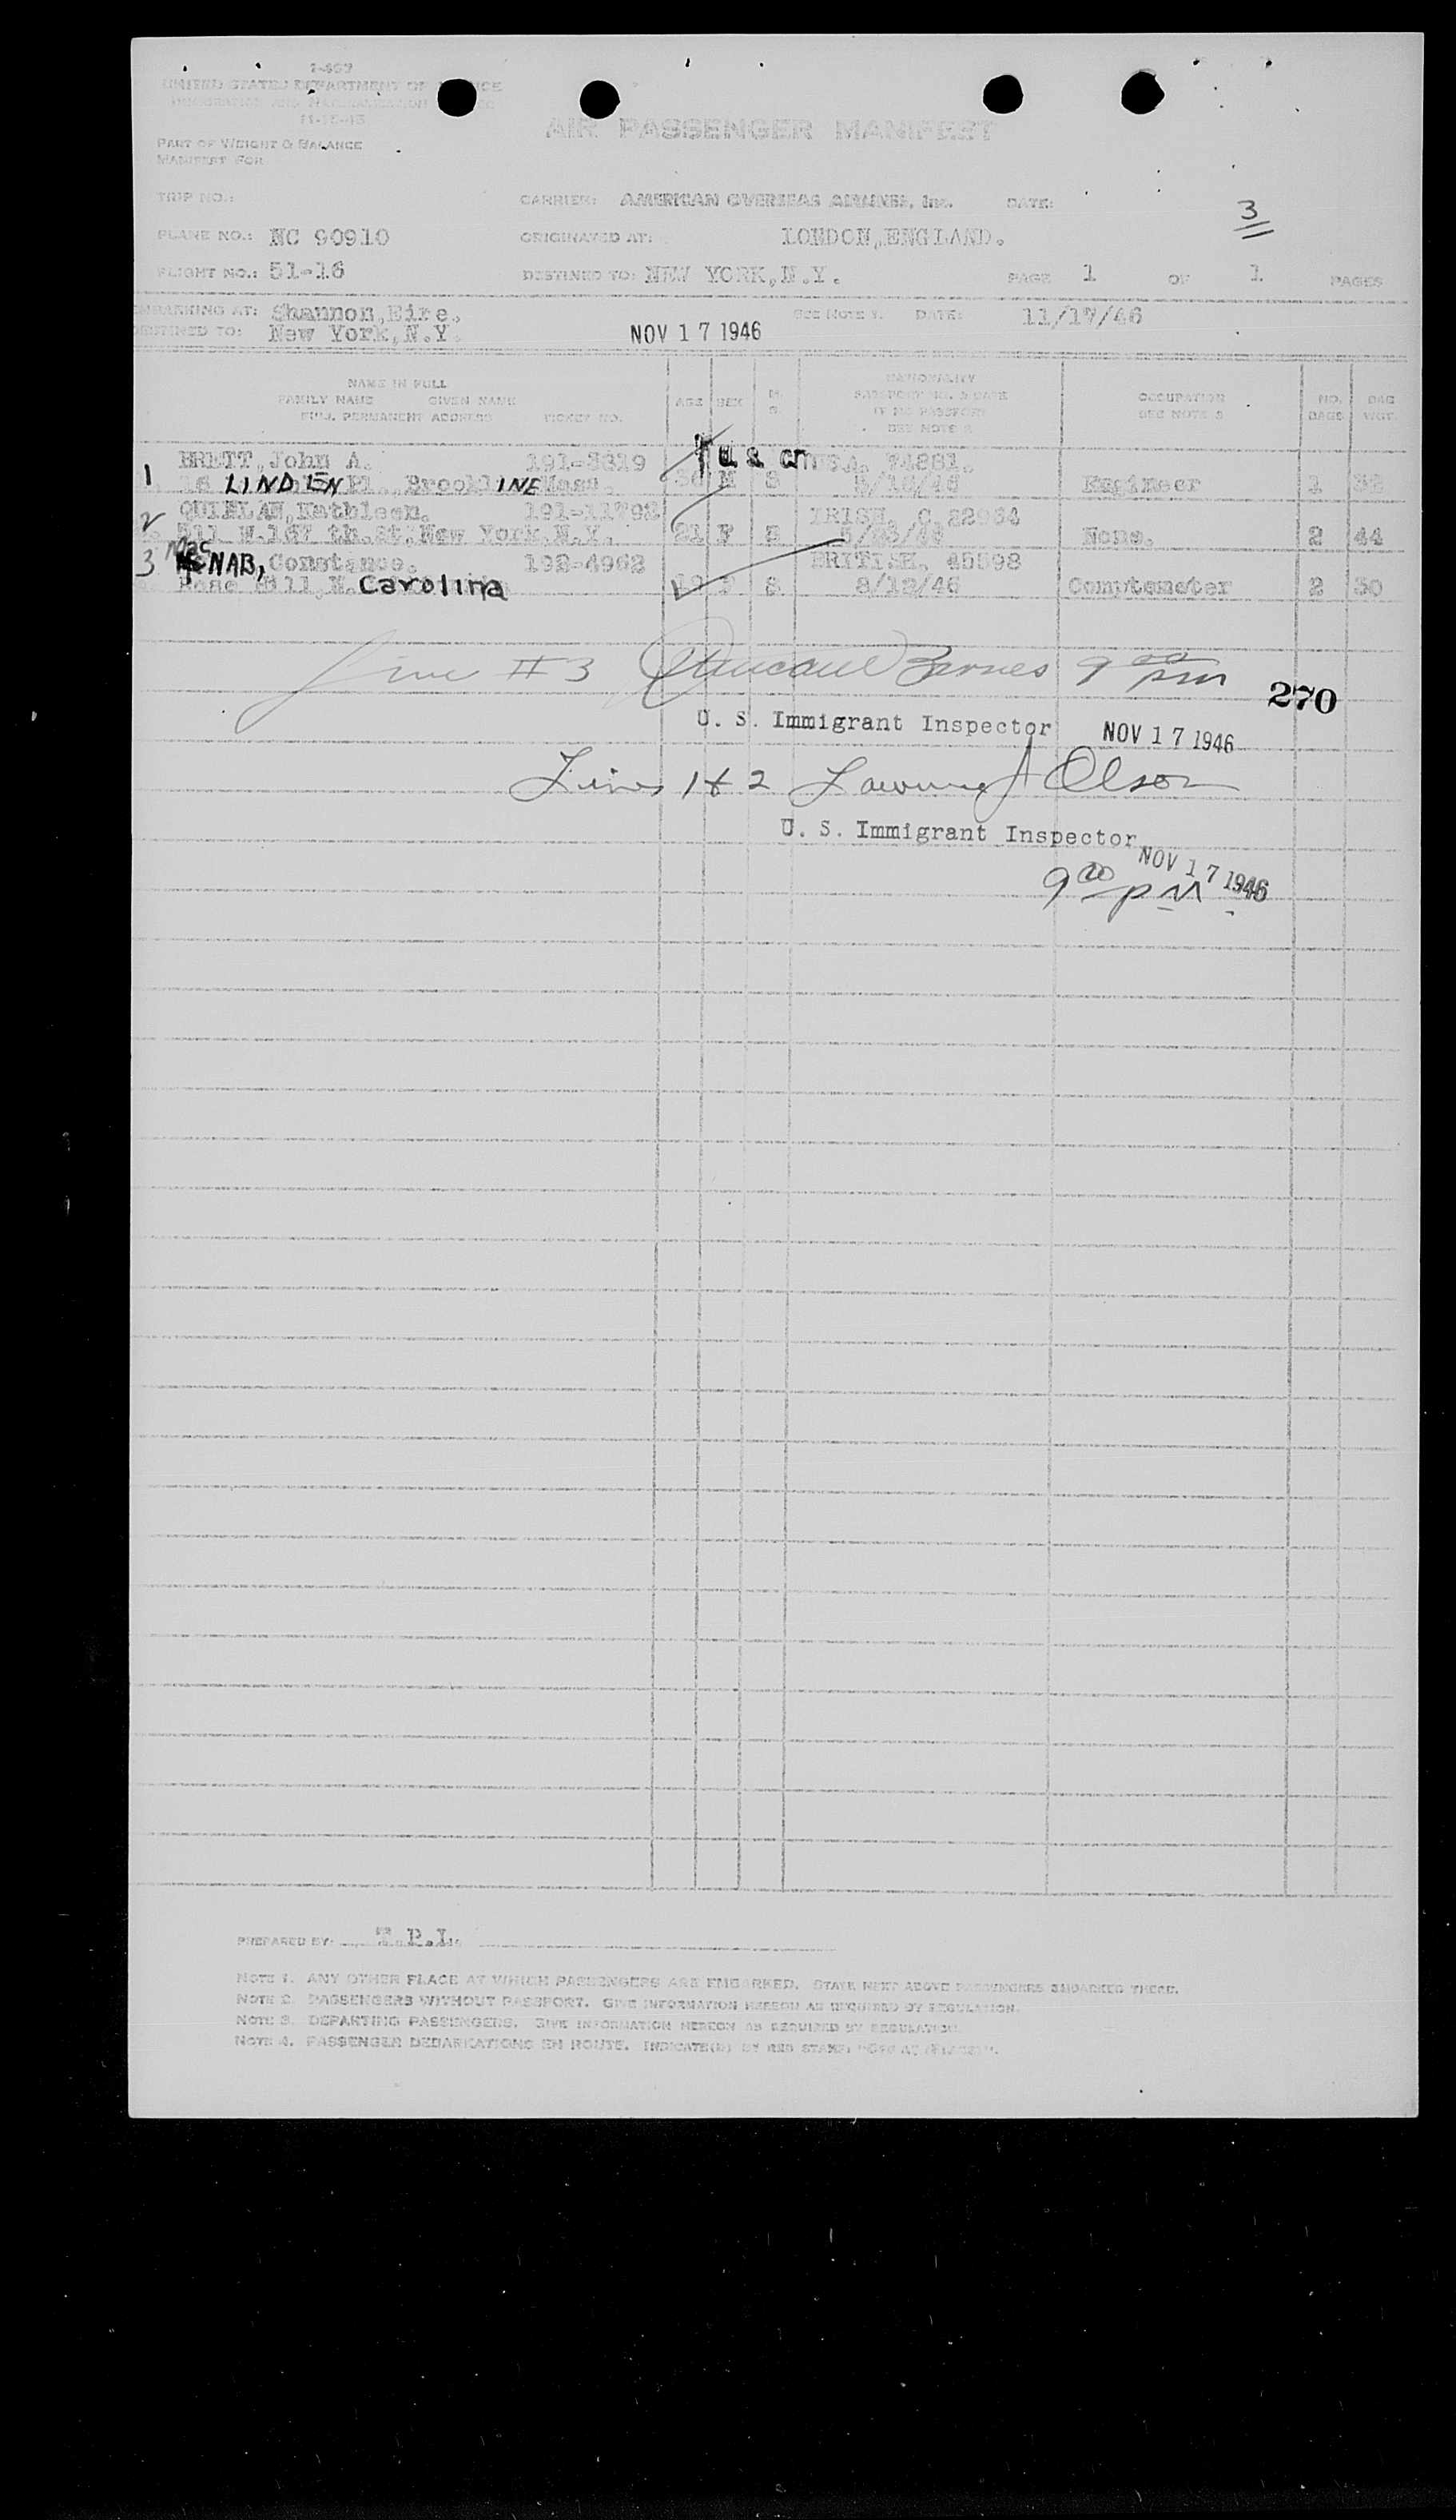 UNITED STATES DEPARTMENT OF
IMMIGRATION AND NATURALIZATION
AIR PASSENGER MANIFEST
PART OF WEIGHT & BALANCE
MANIFEST FOR
TRIP NO.: CARRIER: AMERICAN OVERSEAS AIRLINES, Inc. DATE:
3
PLANE NO.: NC 90910 ORIGINATED AT: LONDON,ENGLAND.
FLIGHT NO.: 51-16 DESTINED TO: NEW YORK,N.Y. PAGE 1 OF 1 PAGES
EMBARKING AT: Shannon,Eire. SEE NOTE 1. DATE: 11/17/46
DESTINED TO: New York,N.Y. NOV 17 1946
NAME IN FULL NATIONALITY
FAMILY NAME GIVEN NAME AGE SEX M. PASSPORT NO. & DATE OCCUPATION NO. BAG
FULL PERMANENT ADDRESS TICKET NO. S. IF NO PASSPORT SEE NOTE 3 BAGS WGT.
SEE NOTE 2
1 BRETT,John A. 191-3819 U.S.A. 74881.
LINDEN Pl. BrooklINE Mass. M S Engineer 1
2 Kathleen. IRISH.
W.167 th.St,New York.N.Y. 21 F S None. 2 44
3 Mac NAB, Constance. 192-4962 BRITISH. 45598
Rose Hill,N. Carolina F S 8/12/46 2 50
Line # 3 Barnes 9 00 pm
270
U. S. Immigrant Inspector NOV 17 1946
Lines 1 & 2 Lawrence J Olson
U. S. Immigrant Inspector
NOV 17 1946
9 00 pm
PREPARED BY: T.P.I.
NOTE 1. ANY OTHER PLACE AT WHICH PASSENGERS ARE EMBARKED. STATE NEXT ABOVE PASSENGERS EMBARKED THERE.
NOTE 2. PASSENGERS WITHOUT PASSPORT. GIVE INFORMATION HEREON AS REQUIRED BY REGULATION.
NOTE 3. DEPARTING PASSENGERS. GIVE INFORMATION HEREON AS REQUIRED BY REGULATION.
NOTE 4. PASSENGER DEBARKATIONS EN ROUTE. INDICATE(D) BY RED STAMP: "OFF AT (PLACE)".